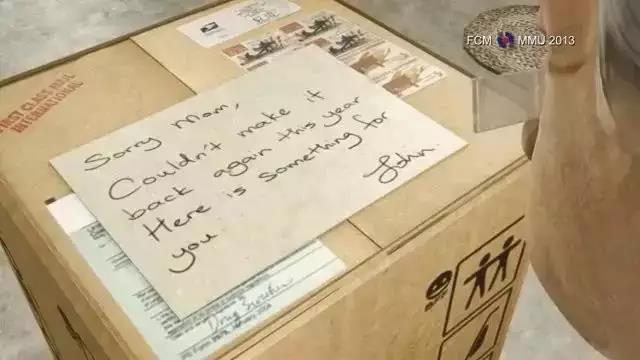 FCM MMU 2013
FIRST CLASS MAIL
INTERNATIONAL
Sorry Mom,
Couldn't make it
back again this year
Here is something for
you
John.